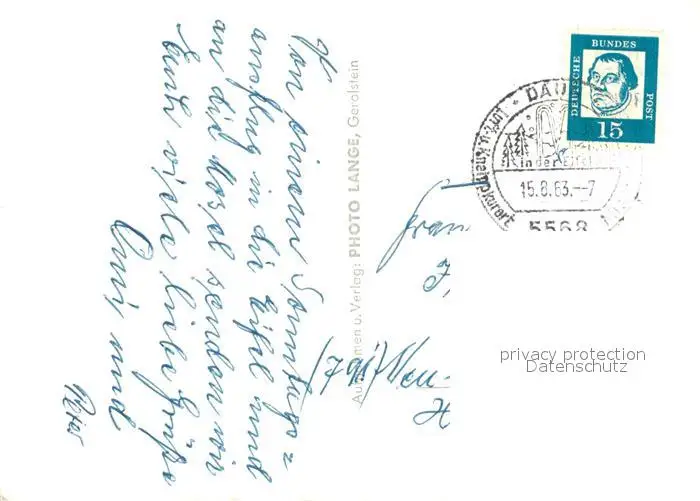 Von einem Sonntags=
ausflug in die Eifel und
an die Mosel senden wir
Euch viele liebe Grüße
und
Peter
Aufnahmen u. Verlag: PHOTO LANGE, Gerolstein
DEUTSCHE BUNDES POST
15
DAU
Luft- u. Kneippkurort
in der Eifel
15.8.63.--7
5568
privacy protection
Datenschutz